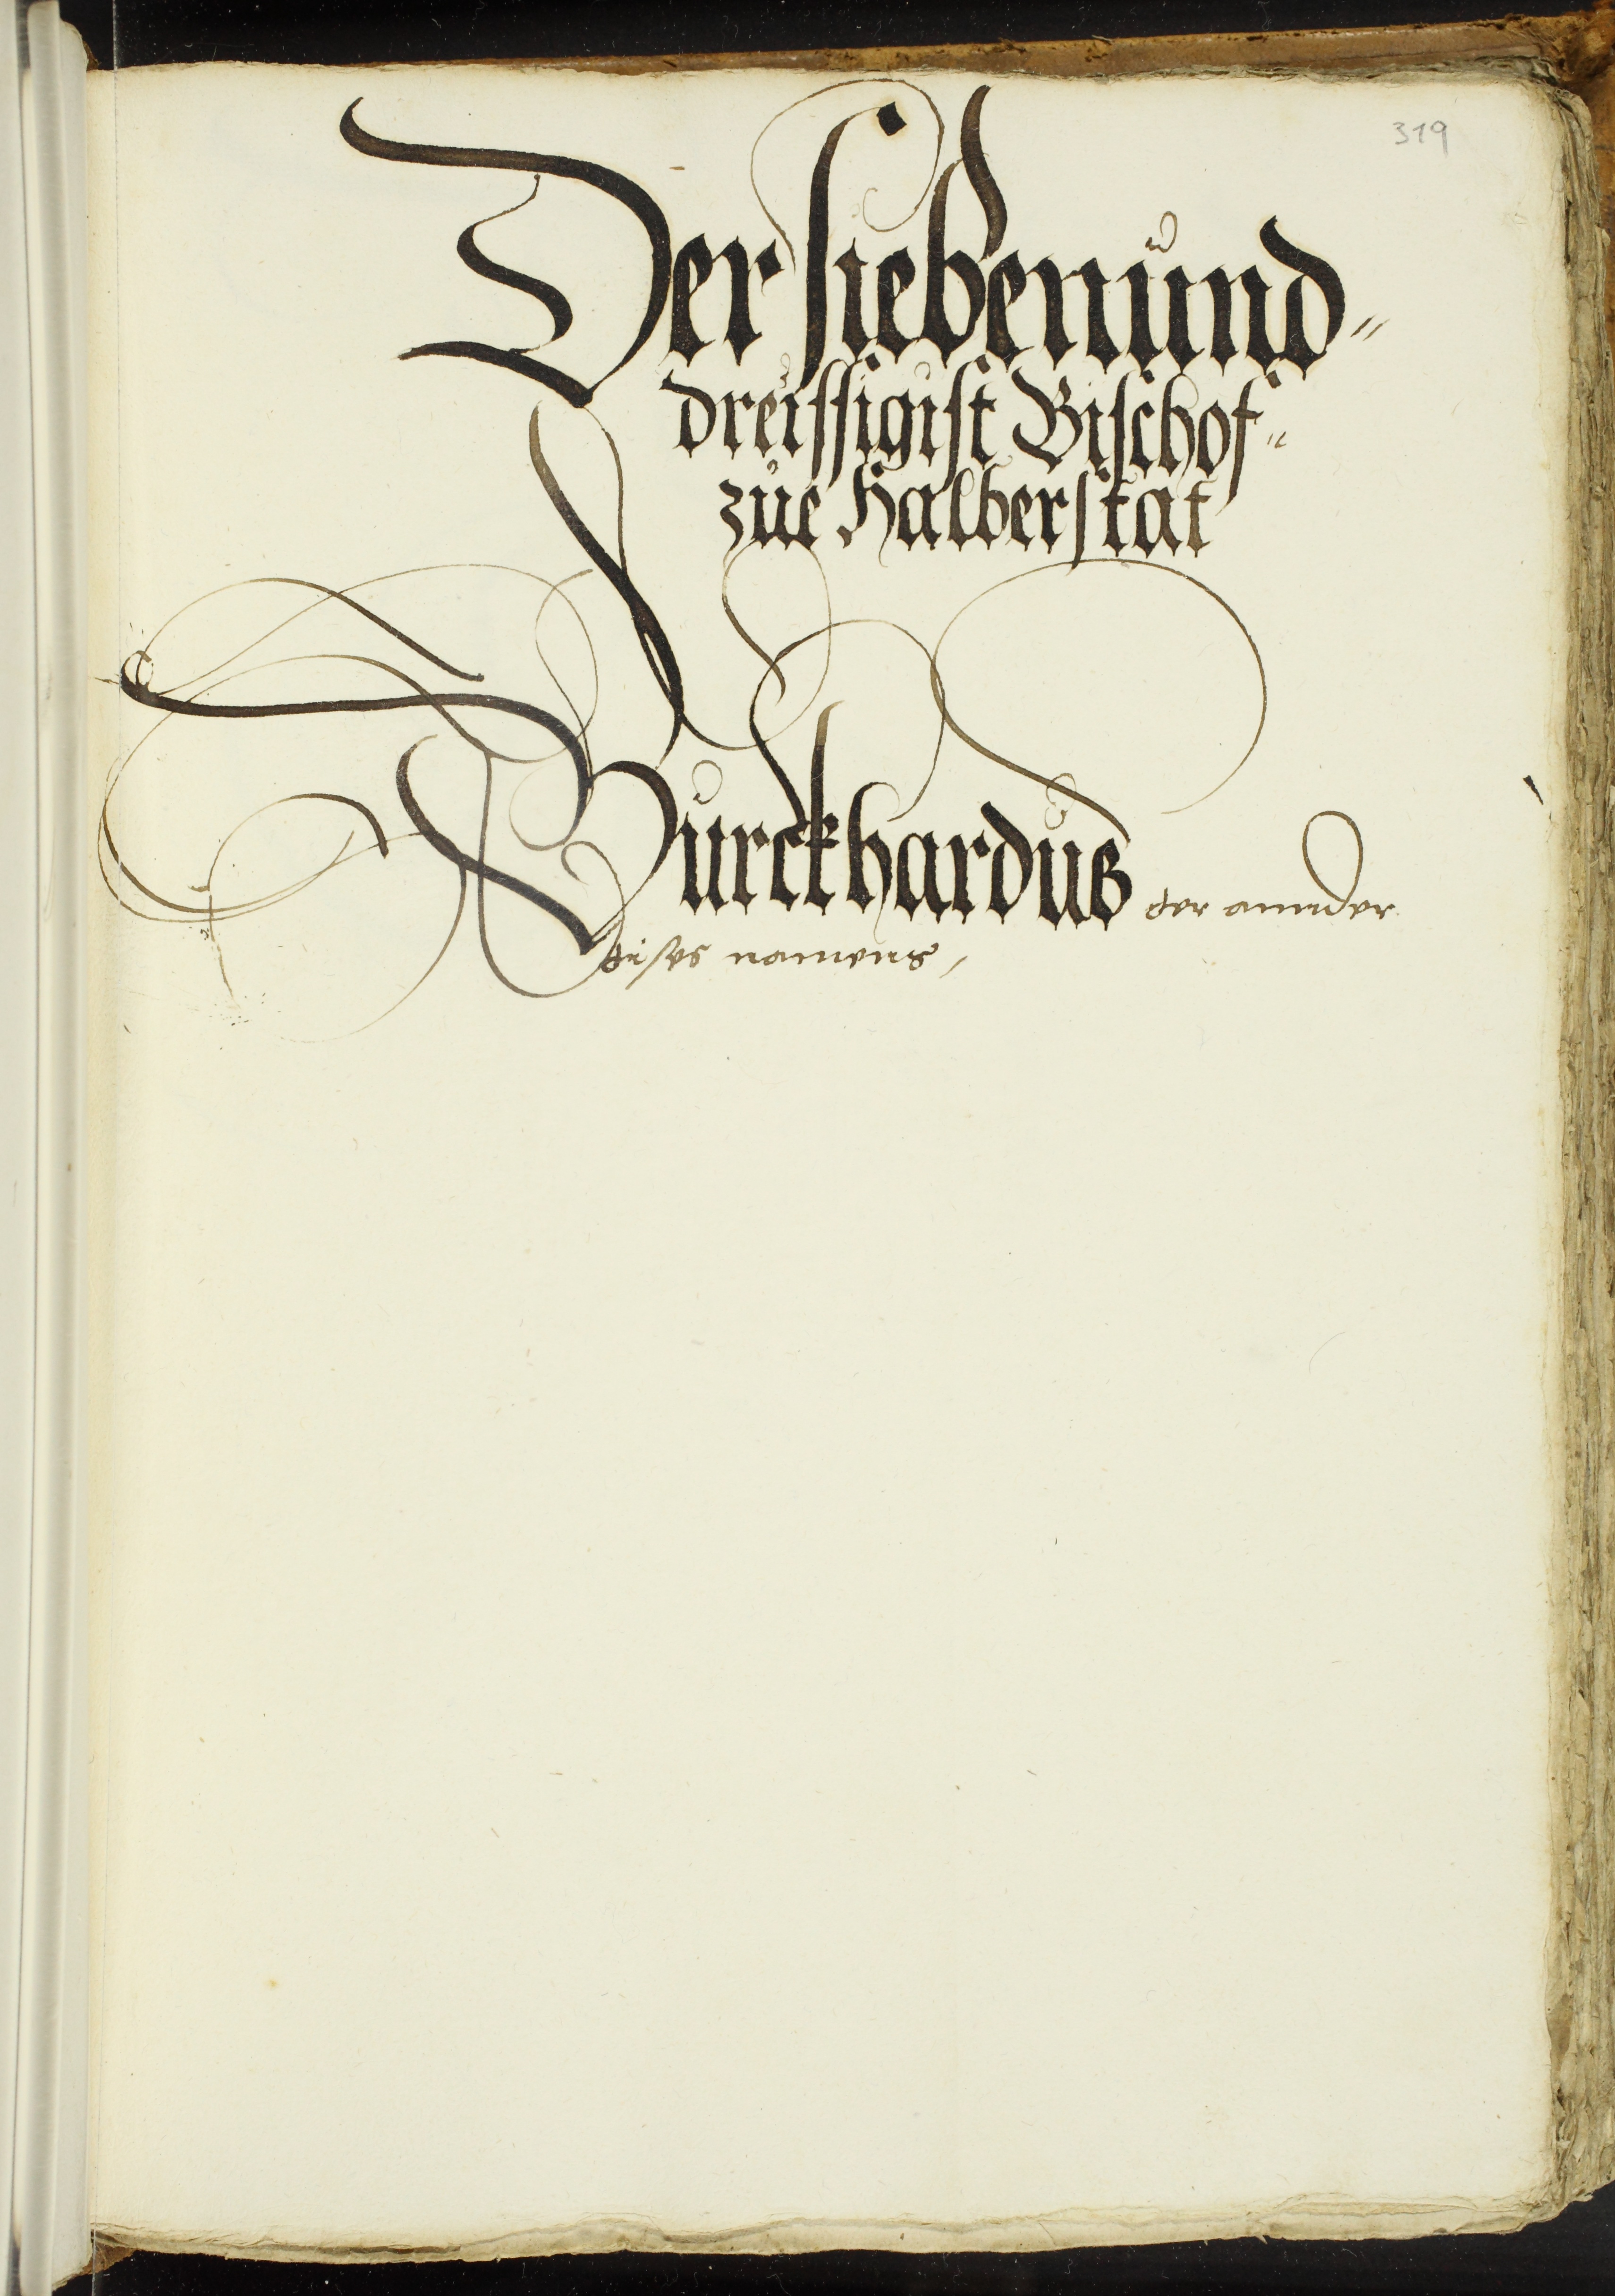 319
Der siebenund=
dreissigist Bischof=
zue Halberstat
Burckhardus der annder
dises namens,